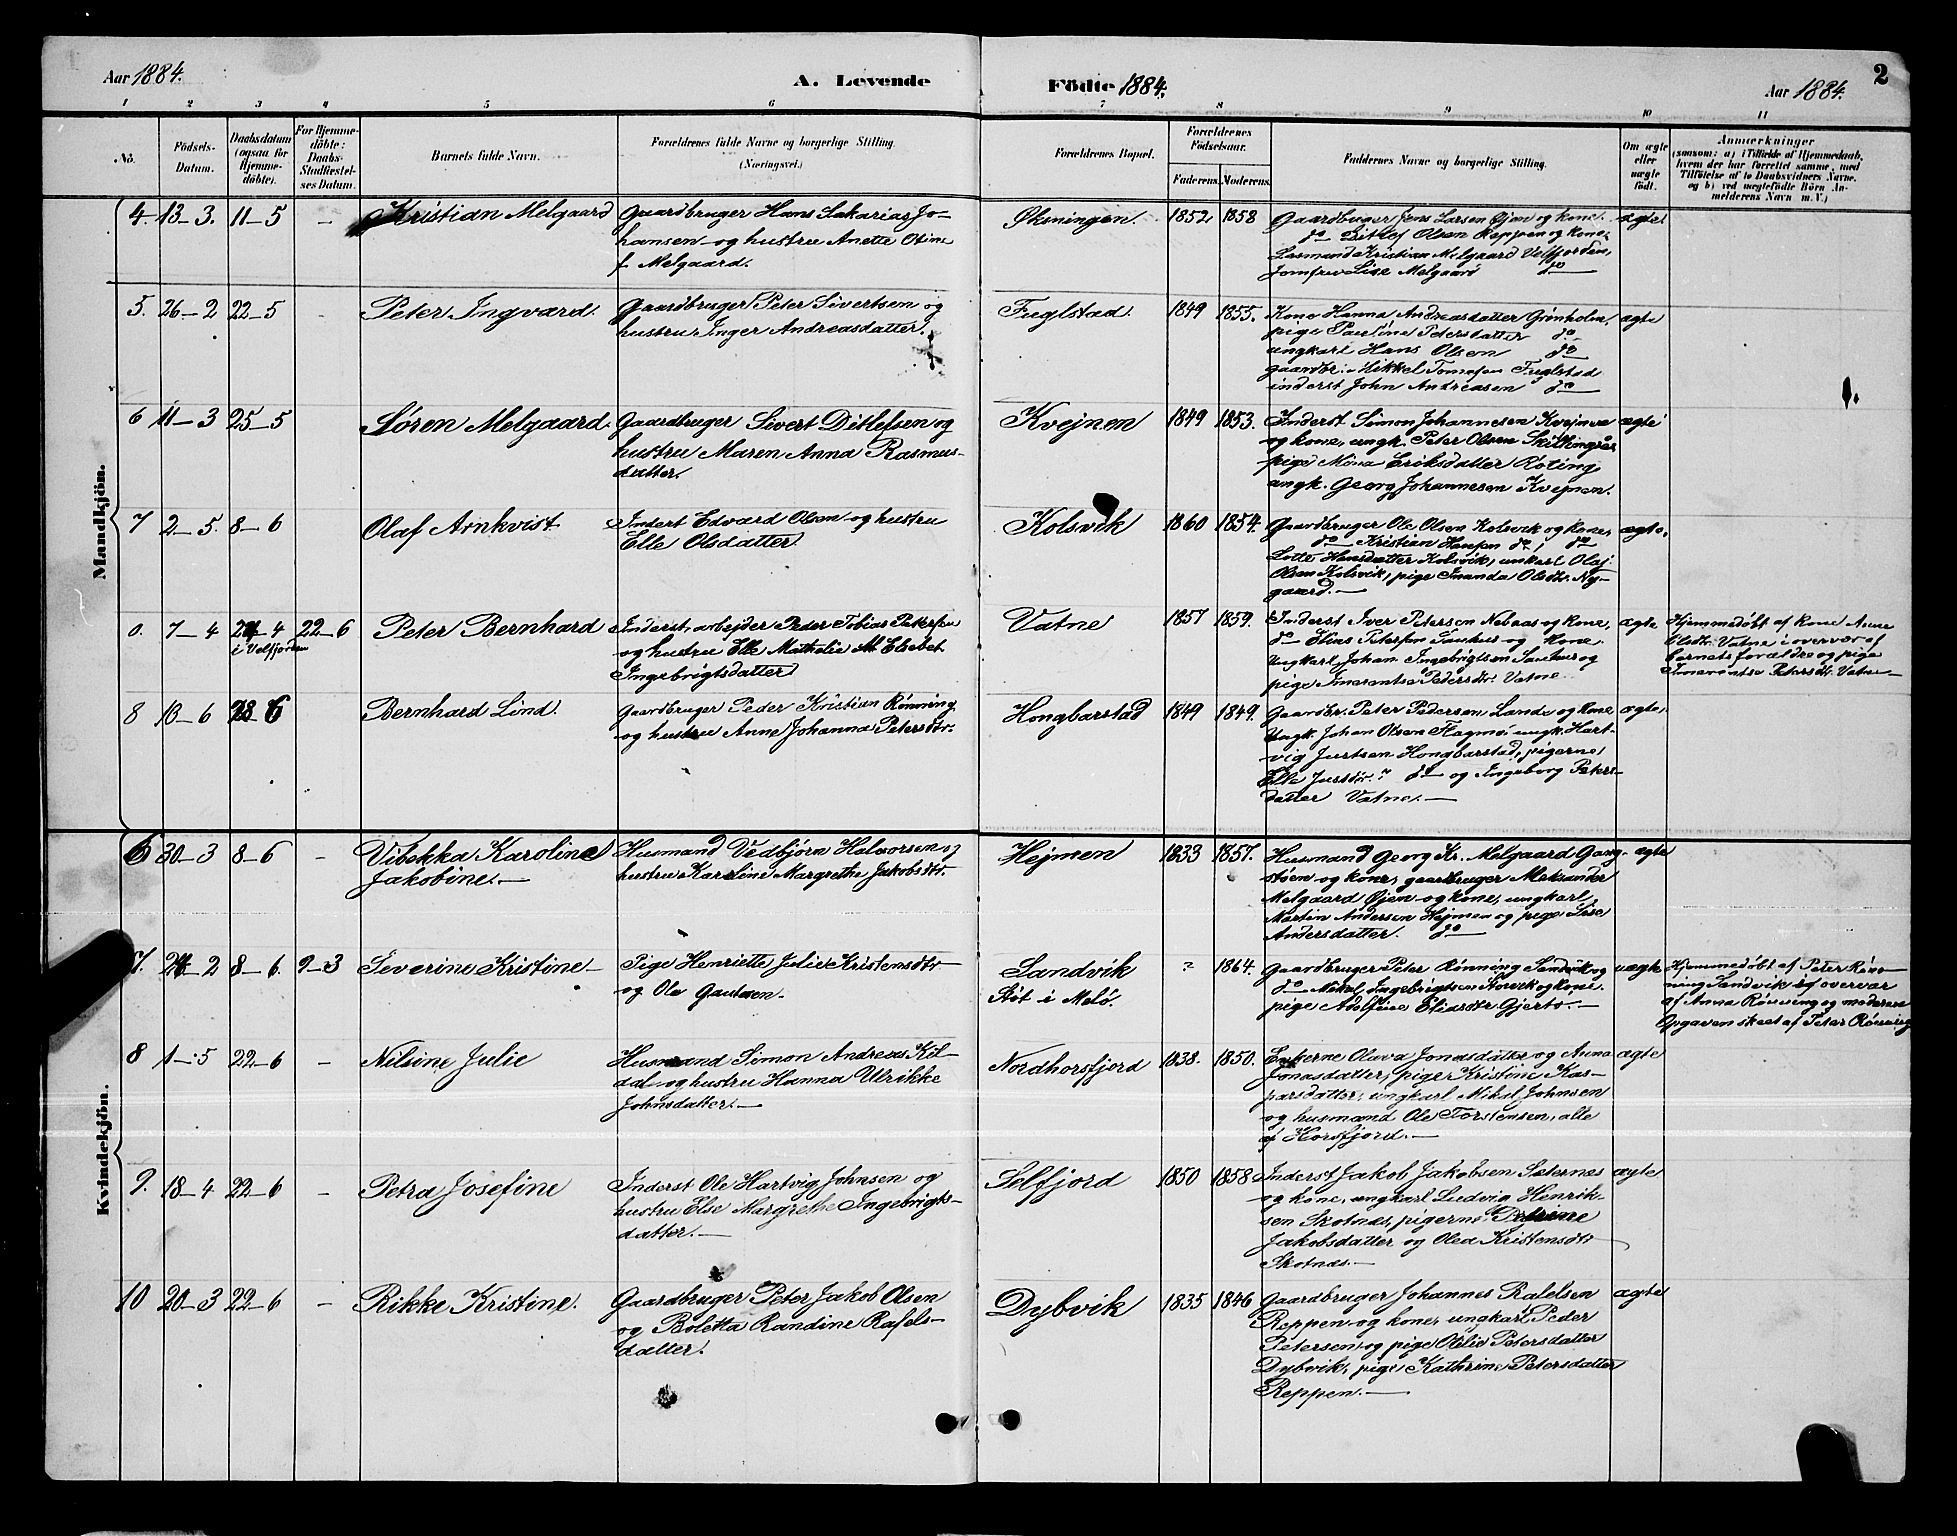 Aar 1884. A. Levende Födte 1884. Aar 1884. 2
1 2 3 4 5 6 7 8 9 10 11
No. Födsels-Datum. Daabsdatum (ogsaa for Hjemme-döbte). For Hjemme-döbte: Daabs-Stadfæstel-ses Datum. Barnets fulde Navn. Forældrenes fulde Navne og borgerlige Stilling. (Næringsvei.) Forældrenes Bopæl. Forældrenes Födselsaar. Faderens. Moderens. Faddernes Navne og borgerlige Stilling. Om ægte eller uægte födt. Anmærkninger
(saasom: a) i Tilfælde af Hjemmedaab,
hvem der har forrettet samme, med
Tilföielse af to Daabsvidners Navne.
og b) ved uægtefödte Börn An-
melderens Navn m. V.)
Mandkjön.
4. 13-3. 11-5 - Kristian Melgaard
Gaardbruger Hans Sakarias Jo-
hansen og hustru Anette Otine
f. Melgaard.
Økningen. 1852 1858
Gaardbruger Jens Larsen Øjen og kone.
do Ditlef Olsen Reppen og kone,
Kristian Melgaard Velfjorden,
Jomfru Lise Melgaard do
ægte
5. 26-2 22-5 - Peter Ingvard.
Gaardbruger Peter Sivertsen og
hustru Inger Andreasdatter.
Fuglstad. 1849 1855.
Kone Hanna Andreasdatter Grönholm,
pige Pauline Petersdatter do
ungkarl Hans Olsen do
gaardbr. Mikkel Tomassen Fuglstad
inderst John Andreasen do
ægte
6 11-3 25-5 Søren Melgaard.
Gaardbruger Sivert Ditlefsen og
hustru Maren Anna Rasmus-
datter.
Kvejnen 1849 1853.
Inderst Simon Johannesen Kvejnen
og kone, ungk. Peter Olsen
pige Mina Eriksdatter Roting
ungk. Georg Johannesen Kvejnen.
ægte
7 2-5. 8-6 Olaf Arnkvist
Inderst Edvard Olsen og hustru
Elle Olsdatter
Kolsvik 1860 1854.
Gaardbruger Ole Olsen Kolsvik og kone,
do Kristian Hansen do do
Lotte Hansdatter Kolsvik, unkarl Olaf
Olsen Kolsvik, pige Imanda Olsdtr. Ny-
gaard.
ægte.
0. 7-4 24-4 i Velfjorden 22-6 Peter Bernhard
Inderst, arbejder Peder Tobias Petersen
og hustru Elle Mathelie M. Elsebet
Ingebrigtsdatter
Vatne 1857 1859.
Inderst Iver Petersen Nebaas og kone,
do Elias Petersen Saukus og kone
Ungkarl Johan Ingebrigtsen og
pige Imerentse Pedersdtr. Vatne
ægte
Hjemmedøbt af kone Anne
Olsdtr. Vatne i overvær af
barnets forældre og pige
Imerentse Petersdtr. Vatne
8 10-6 28-6 Bernhard Lind.
Gaardbruger Peder Kristian Rönning
og hustru Anne Johanna Petersdtr.
Hongbarstad 1849 1849.
Gaardbr. Peter Pedersen Lande og kone,
Ungk. Johan Olsen Flagmo, ungk. Hart-
vig Justsen Hongbarstad, pigerne
Elle Justdtr. do og Ingeborg Peters-
datter Vatne.
ægte,
Kvindekjön.
6 30-3 8-6 - Vibekka Karoline
Jakobine.
Husmand Vedbjørn Halvorsen og
hustru Karoline Margrethe Jakobsdtr.
Hejmen 1833 1857.
Husmand Georg Kr. Melgaard Gang-
støen og kone, gaardbruger Aleksander
Melgaard Øjen og kone, ungkarl
Martin Andersen Hejmen og pige Lise
Andersdatter. do
ægte
7. 24-2 8-6. 9-3 Severine Kristine
Pige Henriette Julie Kristensdtr
og Ole Gautsen.
Sandvik
Støt i Melö.
? 1864.
Gaardbruger Peter Rönning Sandvik og
do Mikal Ingebrigtsen Storvik og kone,
pige Adolfine Eliasdtr. Gjerto.
uægte
Hjemmedøbt af Peter Rön-
ning Sandvik i overvær
af Anna Rønning og moderen
Opgaven skeet af Peter Rönning
8 1-5 22-6 - Nilsine Julie
Husmand Simon Andreas Kil-
dal og hustru Hanna Ulrikke
Johnsdatter.
Nordhorsfjord 1838. 1850.
Enkerne Oluva Jonasdatter og Anna
Jonasdatter, pige Kristine Kas-
parsdatter, ungkarl Mikal Johnsen
og husmand Ole Torstensen, alle
af Horsfjord.
ægte
9. 18-4 22-6 - Petra Josefine
Inderst Ole Hartvig Johnsen og
hustru Else Margrethe Ingebrigts-
datter.
Selfjord 1850 1858
Inderst Jakob Jakobsen Seternes
og kone, ungkarl Ludvig Henrik-
sen Skotnes, pigerne Petrine
Jakobsdatter og Olea Kristensdtr
Skotnes.
ægte
10 20-3 22-6 - Rikke Kristine.
Gaardbruger Peter Jakob Olsen
og Boletta Randine Rafels-
datter.
Dybvik 1835 1846
Gaardbruger Johannes Rafelsen
Reppen og kone, ungkarl Peder
Petersen og pige Otelie Petersdatter
Dybvik, pige Kathrine Petersdatter
Reppen.
ægte